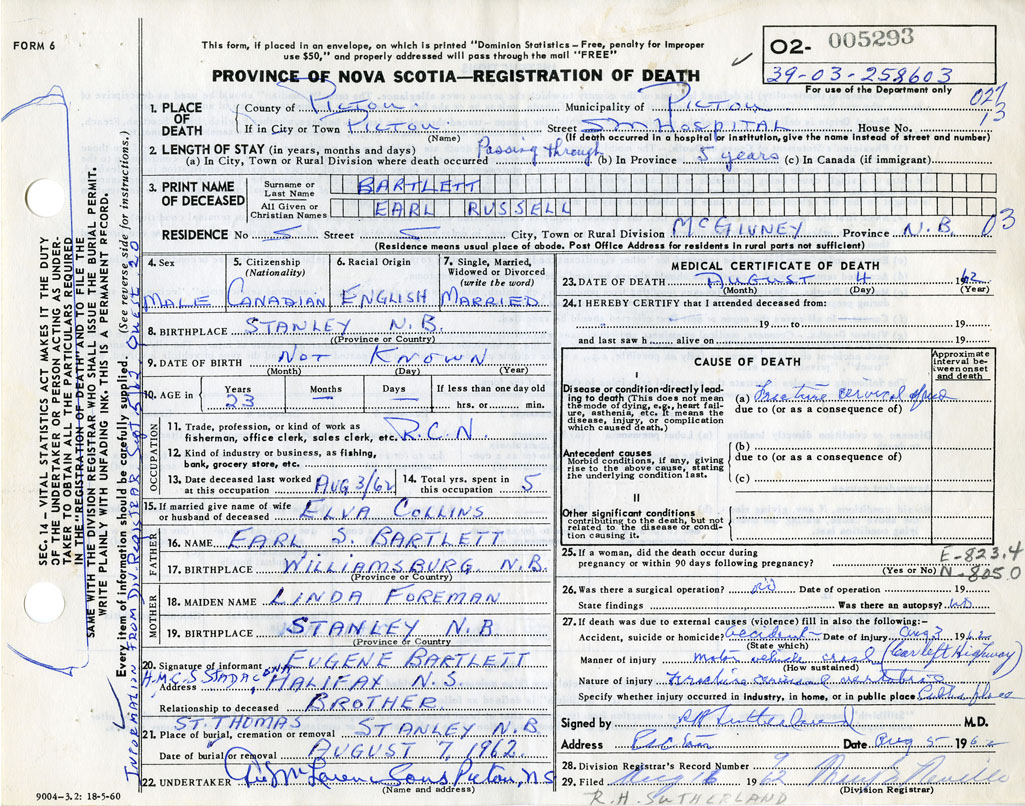 FORM 6
This form, if placed in an envelope, on which is printed "Dominion Statistics – Free, penalty for Improper
use $50," and properly addressed will pass through the mail "FREE"
PROVINCE OF NOVA SCOTIA—REGISTRATION OF DEATH
02- 005293
39-03-258603
For use of the Department only
027
13
1. PLACE OF DEATH
County of PICTOU Municipality of PICTOU
If in City or Town PICTOU (Name) Street S M HOSPITAL House No.
(If death occurred in a hospital or institution, give the name instead of street and number)
2. LENGTH OF STAY (in years, months and days)
(a) In City, Town or Rural Division where death occurred Passing through (b) In Province 5 years (c) In Canada (if immigrant)
3. PRINT NAME OF DECEASED
Surname or Last Name BARTLETT
All Given or Christian Names EARL RUSSELL
RESIDENCE No S Street S City, Town or Rural Division MCGIVNEY Province N.B. 03
(Residence means usual place of abode. Post Office Address for residents in rural parts not sufficient)
4. Sex MALE
5. Citizenship (Nationality) CANADIAN
6. Racial Origin ENGLISH
7. Single, Married, Widowed or Divorced (write the word) MARRIED
8. BIRTHPLACE STANLEY N.B.
(Province or Country)
9. DATE OF BIRTH NOT KNOWN
(Month) (Day) (Year)
10. AGE in Years 23 Months — Days — If less than one day old hrs. or min.
OCCUPATION
11. Trade, profession, or kind of work as
fisherman, office clerk, sales clerk, etc. R.C.N.
12. Kind of industry or business, as fishing,
bank, grocery store, etc.
13. Date deceased last worked at this occupation AUG 3/62
14. Total yrs. spent in this occupation 5
15. If married give name of wife or husband of deceased ELVA COLLINS
FATHER
16. NAME EARL S. BARTLETT
17. BIRTHPLACE WILLIAMSBURG N.B.
(Province or Country)
MOTHER
18. MAIDEN NAME LINDA FOREMAN
19. BIRTHPLACE STANLEY N.B
(Province or Country)
20. Signature of informant EUGENE BARTLETT
H.M.C.S STADACONA
Address HALIFAX N.S.
Relationship to deceased BROTHER
ST. THOMAS
21. Place of burial, cremation or removal STANLEY N.B
Date of burial or removal AUGUST 7, 1962
22. UNDERTAKER McLaren Sons Pictou, N S
(Name and address)
9004-3.2: 18-5-60
MEDICAL CERTIFICATE OF DEATH
23. DATE OF DEATH AUGUST 4 1962
(Month) (Day) (Year)
24. I HEREBY CERTIFY that I attended deceased from:
19 to 19
and last saw h alive on 19
CAUSE OF DEATH
Approximate interval between onset and death
I
Disease or condition directly leading to death (This does not mean the mode of dying, e.g., heart failure, asthenia, etc. It means the disease, injury, or complication which caused death.)
(a) Fracture cervical spine
due to (or as a consequence of)
Antecedent causes
Morbid conditions, if any, giving rise to the above cause, stating the underlying condition last.
(b)
due to (or as a consequence of)
(c)
II
Other significant conditions
contributing to the death, but not related to the disease or condition causing it.
25. If a woman, did the death occur during
pregnancy or within 90 days following pregnancy?
(Yes or No)
E-823.4
N-805.0
26. Was there a surgical operation? no Date of operation 19
State findings Was there an autopsy? no
27. If death was due to external causes (violence) fill in also the following:-
Accident, suicide or homicide? accident Date of injury Aug 3 1962
(State which)
Manner of injury motor vehicle crash (Car left Highway)
(How sustained)
Nature of injury Fracture cervical vertebrae
Specify whether injury occurred in industry, in home, or in public place Public place
Signed by R H Sutherland M.D.
Address Pictou Date Aug 5 1962
28. Division Registrar's Record Number 9
29. Filed Aug 16 1962 Neville
(Division Registrar)
R.H. SUTHERLAND
SEC. 14 – VITAL STATISTICS ACT MAKES IT THE DUTY
OF THE UNDERTAKER OR PERSON ACTING AS UNDER-
TAKER TO OBTAIN ALL THE PARTICULARS REQUIRED
IN THE "REGISTRATION OF DEATH" AND TO FILE THE
SAME WITH THE DIVISION REGISTRAR WHO SHALL ISSUE THE BURIAL PERMIT.
WRITE PLAINLY WITH UNFADING INK. THIS IS A PERMANENT RECORD.
Every item of information should be carefully supplied. (See reverse side for instructions.)
INFORMATION FROM DIV REGISTRAR Sept 5/62 QUEST 20